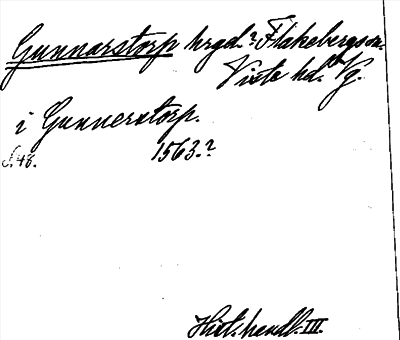 Gunnarstorp hrgd.? Flakebergs sn.
Viste hd. Vg.
i Gunnerstorp.
S. 48. 1563.?
Hist. handl. III.